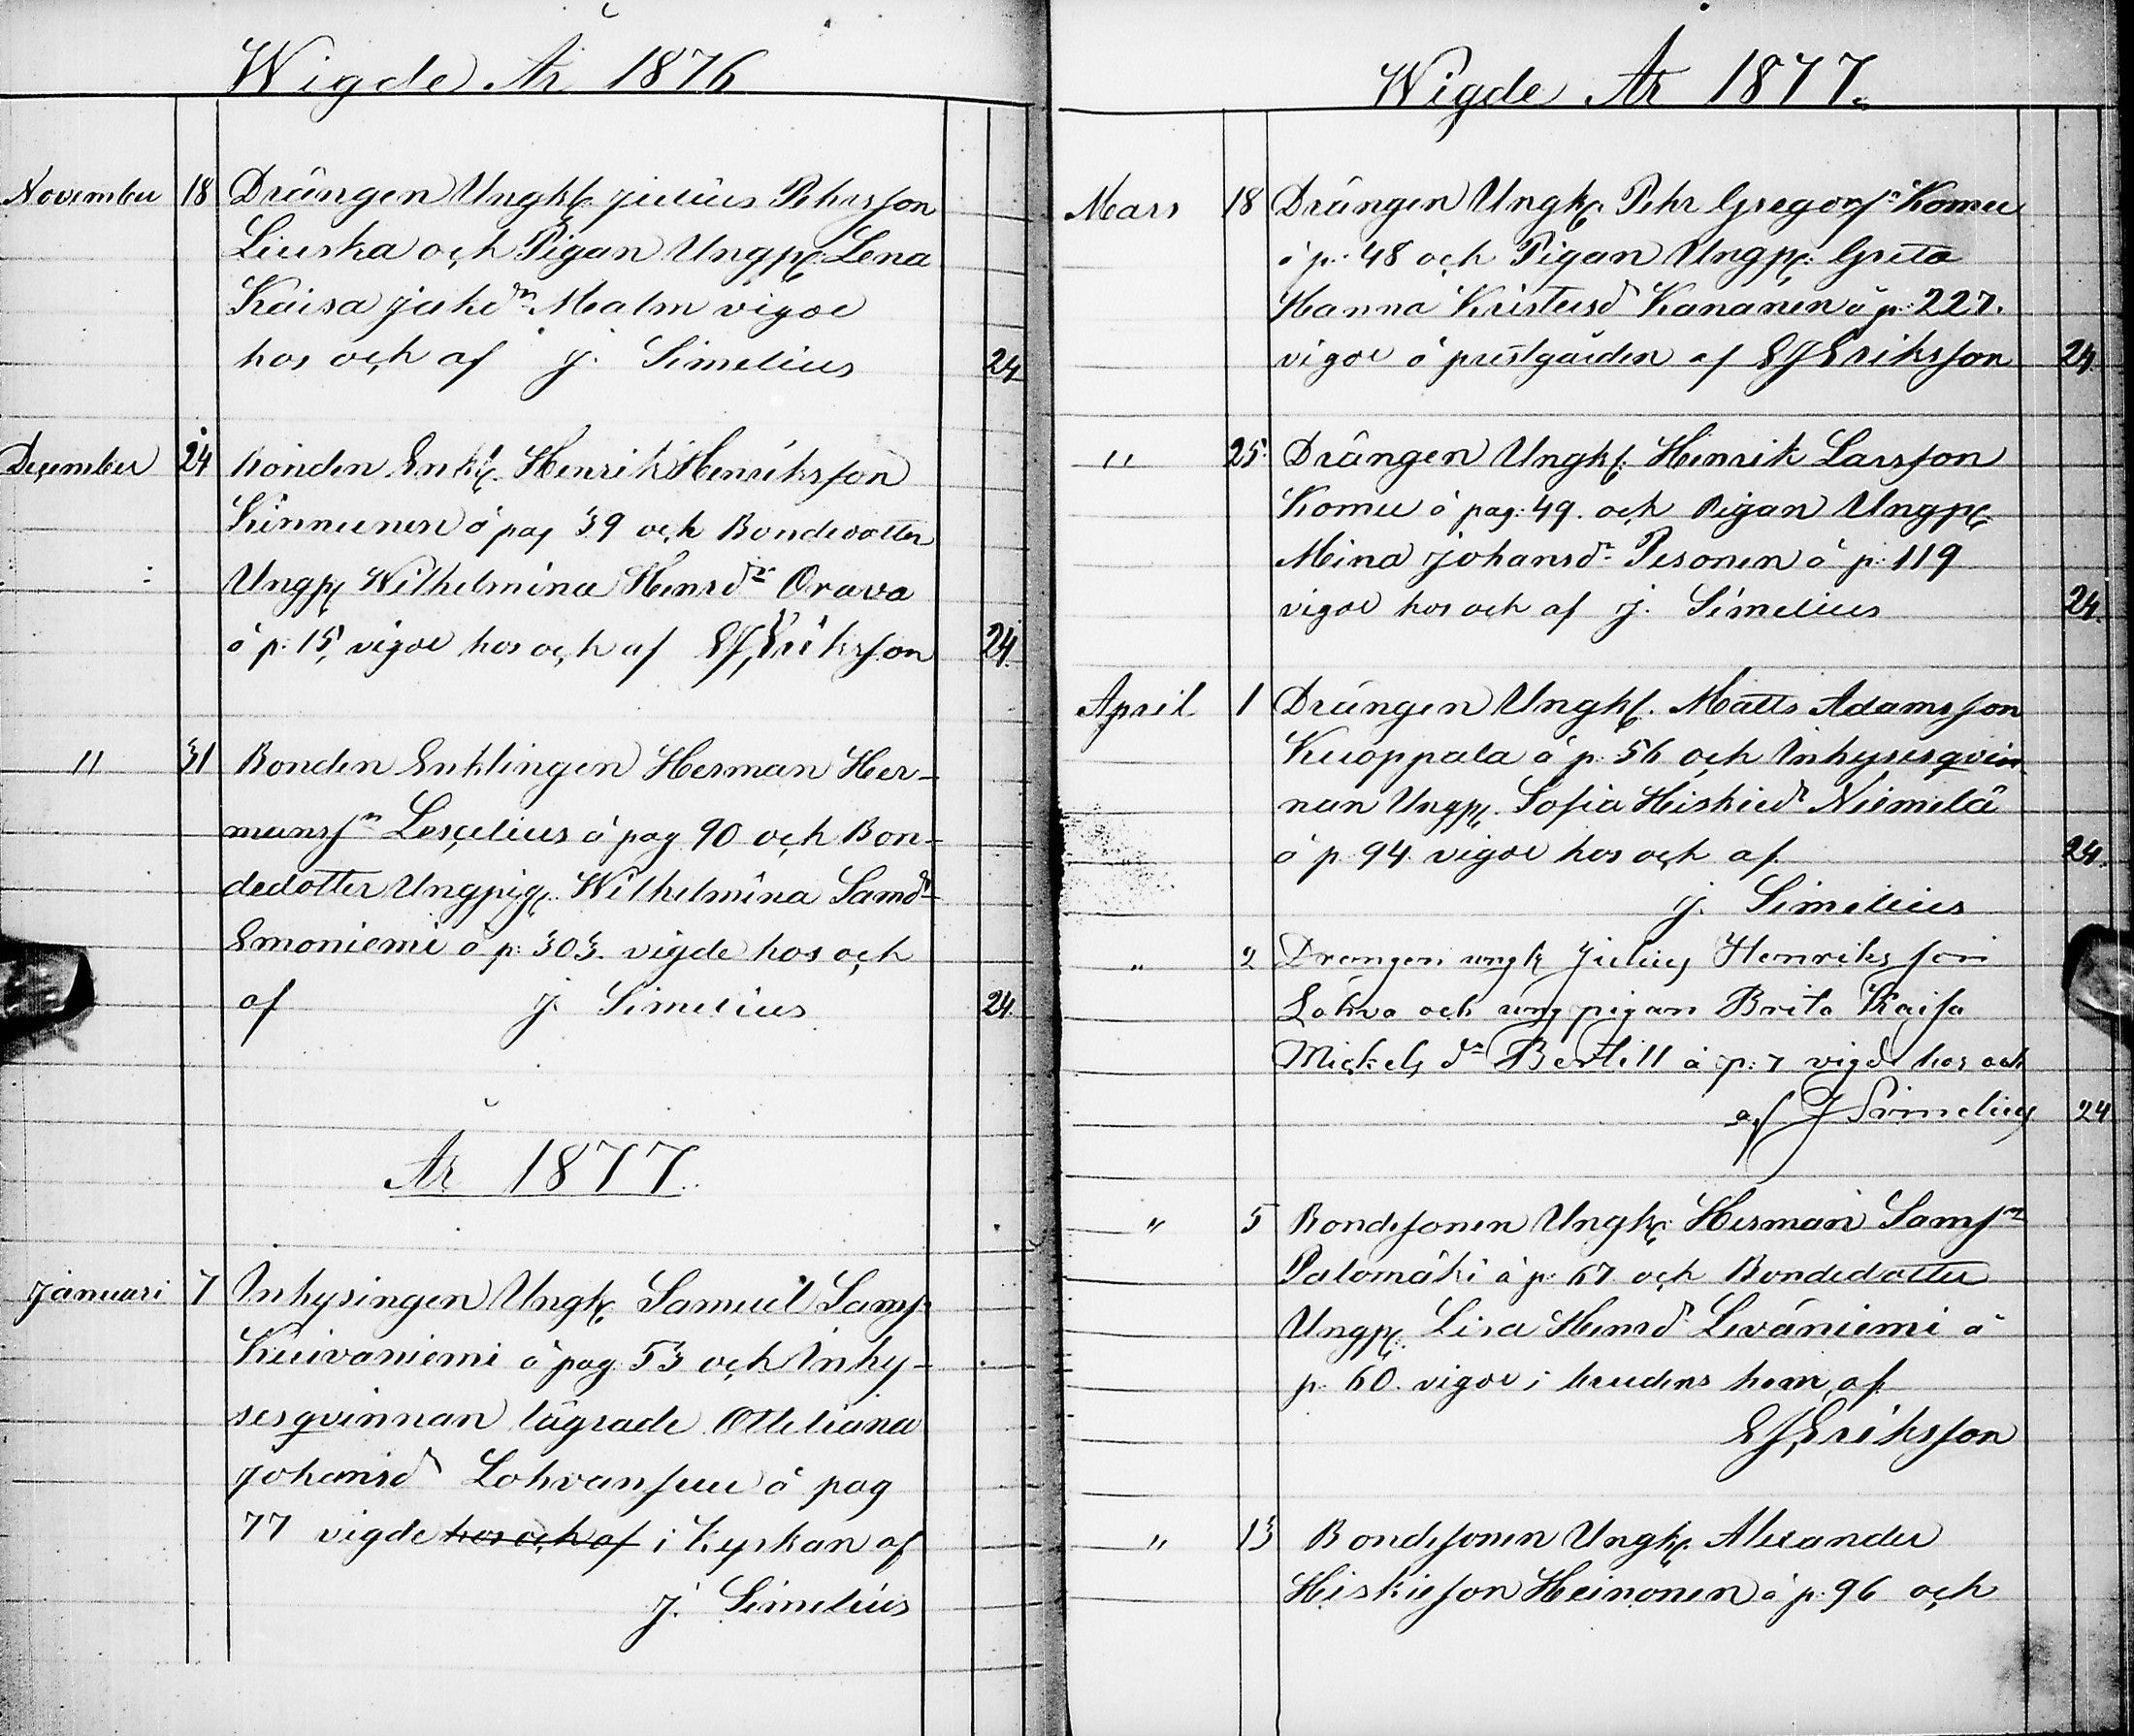 Wigde År 1876
November 18 Drängen Ungk. Julius Pehrsson
Liuska och Pigan Ungp. Lena
Kaisa Jakdr Malm vigde
hos och af J. Simelius 24
December 24 Bonden Enkl. Henrik Henriksson
Kinnunen å pag 39 och Bondedotter
Ungp. Wilhelmina Hensdr Orava
å p: 15, vigde hos och af E J Eriksson 24.
" 31 Bonden Enklingen Herman Her-
mansn Lescelius å pag 90 och Bon-
dedotter Ungpig. Wilhelmina Samdr
Emoniemi å p: 303. vigde hos och
af J. Simelius 24.
År 1877.
Januari 7 Inhysingen Ungk. Samuel Sams.
Kuivaniemi å pag. 53 och Inhy-
sesqvinnan lägrade Otteliana
Johansd Lohvansuu å pag
77 vigde hos och af i kyrkan af
J. Simelius
Wigde År 1877.
Mars 18 Drängen Ungk. Pehr Gregorsn Komu
å p. 48 och Pigan Ungp. Greta
Hanna Kristersdr Kananen å p: 227.
vigde å prestgården af E J Eriksson 24.
" 25. Drängen Ungk. Henrik Larsson
Komu å pag: 49. och Pigan Ungp.
Mina Johansdr Pesonen å p: 119
vigde hos och af J. Simelius 24.
April 1 Drängen Ungk. Matts Adamsson
Kuoppala å p. 56 och Inhysesqvin-
nan Ungp. Sofia Heskiedr Niemelä
å p. 94. vigde hos och af 24.
J. Simelius
" 2 Drengen ungk Julius Henriksson
Lohva och ungpigan Brita Kaisa
Mickels dr Bertill å p: 7 vigde hos och
af J Simelius 24
" 5 Bondesonen Ungk. Herman Samsn
Palomäki å p. 67 och Bondedotter
Ungp. Lisa Hensdr Leväniemi å
p. 60. vigde i brudens hem af
E J Eriksson
" 13 Bondesonen Ungk. Alexander
Hiskieson Heinonen å p: 96 och